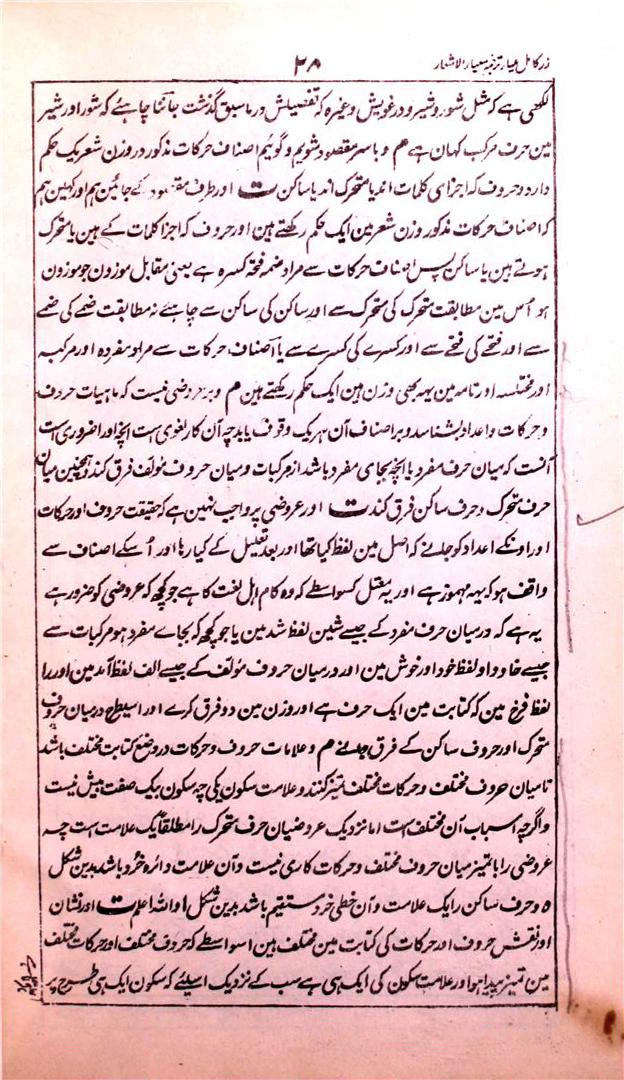 زر کامل عیار ترجمہ معیار الاشعار
۳۸
لکھی ہے کہ مثل شور و شیر و در غویش وغیرہ کہ تفصیلش در ما سبق گذشت جاننا چاہئے کہ شور اور شیر
مین حرف مرکب کہان ہے م و با سر مقصود شویم و گوئیم اصناف حرکات مذکور در وزن شعر یک حکم
دارد و حروف کہ اجزای کلمات اند یا متحرک اند یا ساکن ت اور طرف مقصود کے جائین ہم اور کہین ہم
کہ اصناف حرکات مذکور وزن شعر مین ایک حکم رکھتے ہین اور حروف کہ اجزا کلمات کے ہین یا متحرک
ہوتے ہین یا ساکن پس اصناف حرکات سے مراد ضمہ فتحہ کسرہ ہے یعنی مقابل موزون جو موزون
ہو اُس مین مطابقت متحرک کی متحرک سے اور ساکن کی ساکن سے چاہئے نہ مطابقت ضمے کی ضمے
سے اور فتحے کی فتحے سے اور کسرے کی کسرے سے یا اصناف حرکات سے مراد مفردہ اور مرکبہ
اور مختلسہ اور تامہ مین یہہ بھی وزن مین ایک حکم رکھتے ہین م و بر عروضی نیست کہ ماہیات حروف
و حرکات و اعداد بشناسد و بر اصناف آن ہر یک وقوف یابد چہ آن کار لغوی است انچہ اورا ضروری است
آنست کہ میان حرف مفرد یا انچہ بجای مفرد باشد از مرکبات و میان حروف مؤلف فرق کند و ہمچنین میان
حرف متحرک و حرف ساکن فرق کند ت اور عروضی پر واجب نہین ہے کہ حقیقت حروف اور حرکات
اور اونکے اعداد کو جانے کہ اصل مین لفظ کیا تھا اور بعد تعلیل کے کیا رہا اور اُسکے اصناف سے
واقف ہو کہ یہہ مہموز ہے اور یہ معتل کسواسطے کہ وہ کام اہل لغت کا ہے جو کچھ کہ عروضی کو ضرور ہے
یہ ہے کہ درمیان حرف مفرد کے جیسے شین لفظ شد مین یا جو کچھ کہ بجاے مفرد ہو مرکبات سے
جیسے خا و واو لفظ خود اور خوش مین اور درمیان حروف مؤلف کے جیسے الف لفظ آمد مین اور را
لفظ فرخ مین کہ کتابت مین ایک حرف ہے اور وزن مین دو فرق کرے اور اسیطرح درمیان حروف
متحرک اور حروف ساکن کے فرق جانے م و علامات حروف و حرکات در وضع کتابت مختلف باشد
تا میان حروف مختلف و حرکات مختلف تمیز کنند و علامت سکون یکی چہ سکون بیک صفت بیش نیست
و اگرچہ اسباب آن مختلف است اما نزدیک عروضیان حرف متحرک را مطلقا یک علامت است چہ
عروضی را با تمیز میان حروف مختلف و حرکات کاری نیست و آن علامت دائرہ خرد باشد بدین شکل
ہ و حرف ساکن را یک علامت و آن خطی خرد مستقیم باشد بدین شکل ا واللہ اعلم ت اور نشان
اور نقش حروف اور حرکات کی کتابت مین مختلف ہین اسواسطے کہ حروف مختلف اور حرکات مختلف
مین تمیز پیدا ہو اور علامت سکون کی ایک ہی ہے سب کے نزدیک اسلئے کہ سکون ایک ہی طرح پر